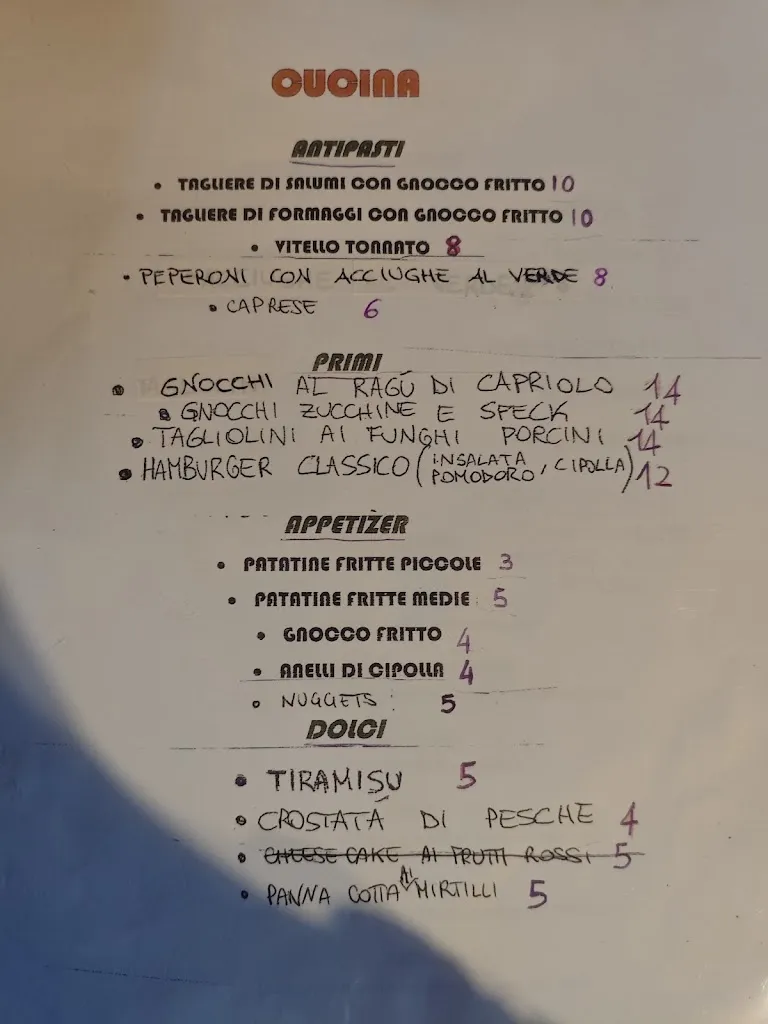 CUCINA
ANTIPASTI
• TAGLIERE DI SALUMI CON GNOCCO FRITTO 10
• TAGLIERE DI FORMAGGI CON GNOCCO FRITTO 10
• VITELLO TONNATO 8
• PEPERONI CON ACCIUGHE AL VERDE 8
• CAPRESE 6
PRIMI
• GNOCCHI AL RAGÙ DI CAPRIOLO 14
• GNOCCHI ZUCCHINE E SPECK 14
• TAGLIOLINI AI FUNGHI PORCINI 14
• HAMBURGER CLASSICO (INSALATA POMODORO, CIPOLLA) 12
APPETIZER
• PATATINE FRITTE PICCOLE 3
• PATATINE FRITTE MEDIE 5
• GNOCCO FRITTO 4
• ANELLI DI CIPOLLA 4
• NUGGETS : 5
DOLCI
• TIRAMISU 5
• CROSTATA DI PESCHE 4
• CHEESE CAKE AI FRUTTI ROSSI 5
• PANNA COTTA AI MIRTILLI 5